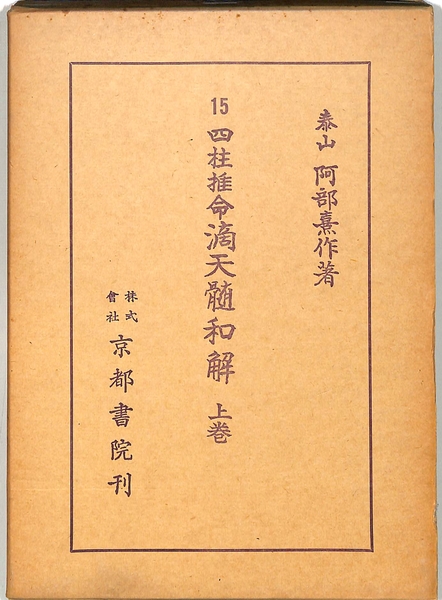 泰山 阿部熹作著
15 四柱推命滴天髓和解 上巻
株式會社 京都書院刊